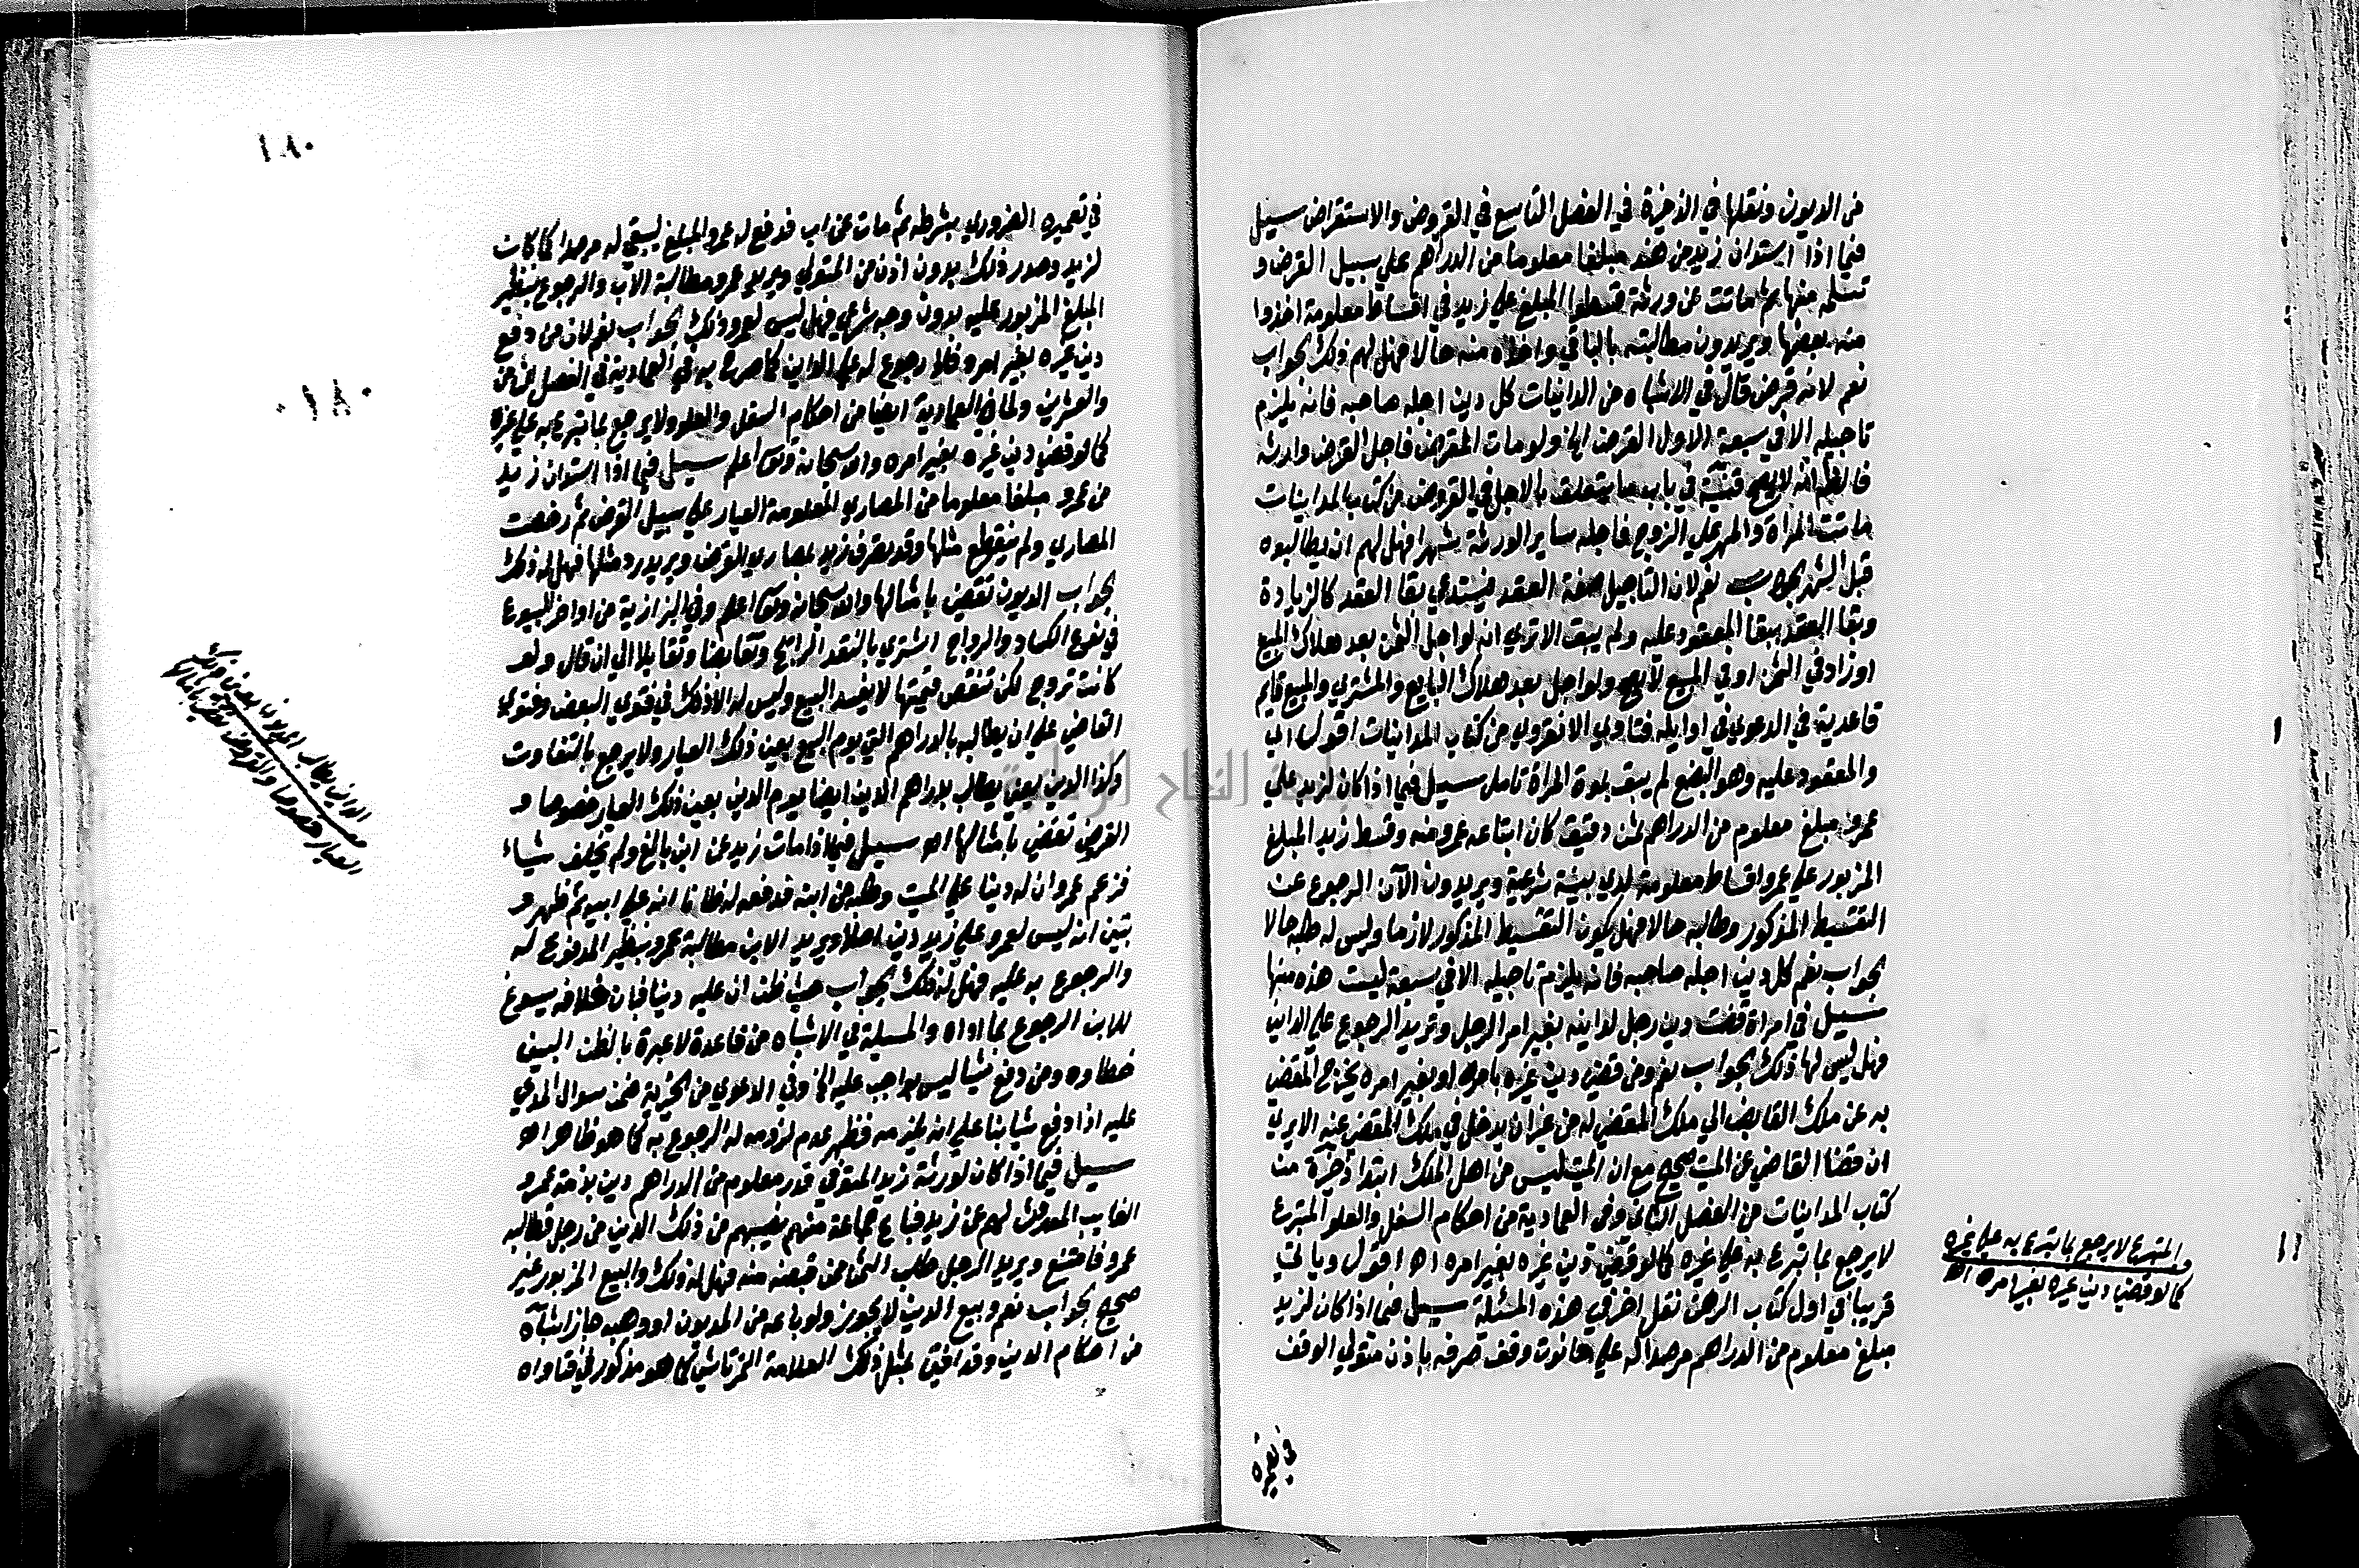 من الديون ونقلها في الذخيرة في الفصل التاسع في القروض والاستقراض سيل
فيما اذا استدان زيد من هند مبلغا معلوما من الدراهم علي سبيل القرض و
تسلمه منها ثم ماتت عن ورثة قسطوا المبلغ علي زيد في اقساط معلومة اخذوا
منه بعضها ويريدون مطالبته بالباقي واخذه منه حالا فهل لهم ذلك الجواب
نعم لانه قرض قال في الاشباه من المداينات كل دين اجله صاحبه فانه يلزم
تاجيله الا في سبعة الاول القرض الخ ولو مات المقرض فاجل القرض وارثه
فالظ انه لا يصح قنية في باب ما يتعلق بالاجل في القروض من كتاب المداينات
ماتت المراة والمهر علي الزوج فاجله ساير الورثة شهرا فهل لهم ان يطالبوه
قبل الشهر الجواب نعم لان التاجيل صفة العقد فيستدعي بقا العقد كالزيادة
وبقا العقد ببقا المعقود عليه ولم يبق الا تري انه لو اجل الثمن بعد هلاك المبيع
او زاد في الثمن او في المبيع لا يصح ولو اجل بعد هلاك البايع والمشتري والمبيع قايم
قاعدية في الدعوي في اوايله فتاوي الانقروي من كتاب المداينات اقول اي
والمعقود عليه وهو البضع لم يبق بموت المراة تامل سيل فيما اذا كان لزيد علي
عمرو مبلغ معلوم من الدراهم ثمن دقيق كان ابتاعه عمرو منه وقسط زيد المبلغ
المزبور علي عمرو اقساط معلومة لدي بينة شرعية ويريدون الآن الرجوع عن
التقسيط المذكور وطالبه حالا فهل يكون التقسيط المذكور لازما وليس له طلبه حالا
الجواب نعم كل دين اجله صاحبه فانه يلزم تاجيله الا في سبعة ليست هذه منها
سيل في امراة قضت دين رجل لداينه بغير امر الرجل وتريد الرجوع علي الداين
فهل ليس لها ذلك الجواب نعم ومن قضي دين غيره بامره او بغير امره يخرج المقضي
به عن ملك القابض الي ملك المقضي له من غير ان يدخل في ملك المقضي عنه الا يري
ان قضا القاضي عن الميت صحيح مع ان الميت ليس من اهل الملك ابتدا ذخيرة من
كتاب المداينات من الفصل الثاني وفي العمادية من احكام السفل والعلو المتبرع
لا يرجع بما تبرع به علي غيره كما لو قضي دين غيره بغير امره اه اقول وياتي
قريبا في اول كتاب الرهن نقل اخر في هذه المسئلة سيل فيما اذا كان لزيد
مبلغ معلوم من الدراهم مرصدا له علي حانوت وقف صرفه باذن متولي الوقف
المتبرع لا يرجع بما تبرع به علي غيره
كما لو قضي دين غيره بغير امره اه
في تعميره
١٨٠
١٨٠
في تعميره الضروري بشرطه ثم مات عن اب فدفع له عمرو المبلغ ليبقي له مرصدا كما كان
لزيد وصدر ذلك بدون اذن من المتولي ويريد عمرو مطالبة الاب والرجوع بنظير
المبلغ المزبور عليه بدون وجه شرعي فهل ليس لعمرو ذلك الجواب نعم لان من دفع
دين غيره بغير امره فلا رجوع له علي الداين كما صرح به في العمادية في الفصل الثامن
والعشرين ولما في العمادية ايضا من احكام السفل والعلو ولا يرجع بما تبرع به علي غيره
كما لو قضي دين غيره بغير امره والله سبحانه وتعالي اعلم سيل فيما اذا استدان زيد
من عمرو مبلغا معلوما من المصاري المعلومة العيار علي سبيل القرض ثم رخصت
المصاري ولم ينقطع مثلها وقد تصرف زيد بمصاري القرض ويريد رد مثلها فهل له ذلك
الجواب الديون تقضي بامثالها والله سبحانه وتعالي اعلم وفي البزازية من اواخر البيوع
في نوع الكساد والرواج اشتري بالنقد الرايج وتقابضا وتقايلا الي ان قال ولو
كانت تروج لكن تنقص قيمتها لا يفسد البيع وليس له الا ذلك في فتوي البعض وفتوي
القاضي علي ان يطالبه بالدراهم التي يوم البيع بعين ذلك العيار ولا يرجع بالتفاوت
وكذا الدين يعني يطالب بدراهم الدين ايضا يوم الدين بعين ذلك العيار خصوصا و
القرض تقضي بامثالها اه سيل فيما اذا مات زيد عن ابن بالغ ولم يخلف شياء
فزعم عمرو ان له دينا علي الميت وطلبه من ابنه فدفعه له ظانا انه علي ابيه ثم ظهر و
تبين انه ليس لعمرو علي زيد دين اصلا ويريد الابن مطالبة عمرو بنظير المدفوع له
والرجوع به عليه فهل له ذلك الجواب حيث ظن ان عليه دينا فبان خلافه يسوغ
للابن الرجوع بما اداه والمسيلة في الاشباه من قاعدة لا عبرة بالظن البين
خطاوه ومن دفع شيا ليس بواجب عليه الخ وفي الدعوي من الخيرية ضمن سوال المدعي
عليه اذا دفع شيا بنا علي انه يلزمه فظهر عدم لزومه له الرجوع به كما هو ظاهر اه
سيل فيما اذا كان لورثة زيد المتوفي قدر معلوم من الدراهم دين بذمة عمرو
الغايب المعروف لهم عن زيد فباع جماعة منهم نصيبهم من ذلك الدين من رجل فطالبه
عمرو فامتنع ويريد الرجل طلب الثمن ممن قبضه منه فهل له ذلك والبيع المزبور غير
صحيح الجواب نعم وبيع الدين لا يجوز ولو باعه من المديون او وهبه جاز اشباه
من احكام الدين وقد افتي بمثل ذلك العلامة التمرتاشي كما هو مذكور في فتاواه